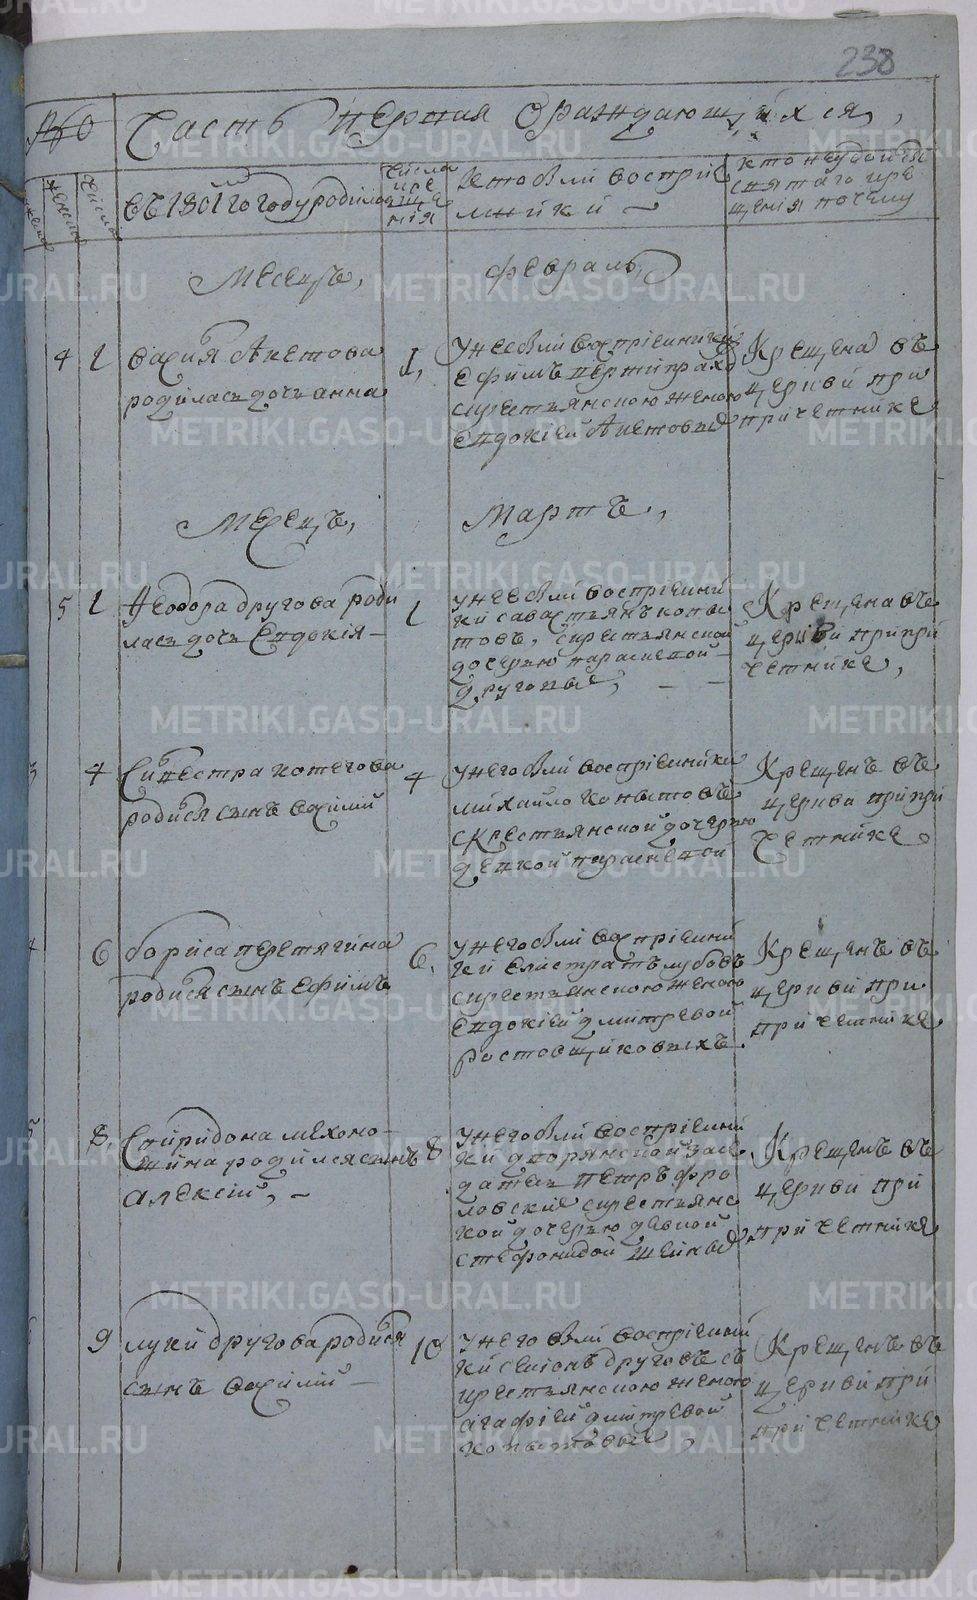 238
Часть первая ораждающихся,
въ 1801го году родилос
числа
кре
ще
нія
кто были воспрі
мники
святаго кре
щенія почему
Месецъ, февраль,
4 1 родилась дочь анна 1,
у нее были воспріемники
Ефимъ
скрестьянскою женою
Евдокіей
Крещена въ
церкви при
причетнике
Месецъ, Мартъ,
5 1 Феодора другова роди
лась дочь Евдокія 1
у нее были воспріемни
ки савастьянъ копы
товъ, скрестьянской
дочерью параскевой
друговые,
Крещена въ
церкви при при
четнике,
4 Силвестра котегова
родился сынъ василій 4
у него были воспріемники
михайло копытовъ
скрестьянской дочерью
девкой параскевой
Крещенъ въ
церкви при при
четнике
6 бориса перетягина
родился сынъ Ефимъ 6.
у него были воспріемни
ки Елистратъ
скрестьянскою женою
Евдокіей дмитревой
ростовщиковыхъ
Крещенъ въ
церкви при
причетнике
8. Спиридона мехоно
шина родился сынъ 8
алексій,
у него были воспріемни
ки дворянской засе
датель петръ фро
ловскіе скрестьянс
кой дочерью девкой
стефанидой
Крещенъ въ
церкви при
причетнике
9 луки другова родился
сынъ василій 10
у него были воспріемни
ки семіонъ друговъ съ
крестьянскою женою
агафіей дмитревой
копытовые,
Крещенъ въ
церкви при
причетнике
METRIKI.GASO-URAL.RU